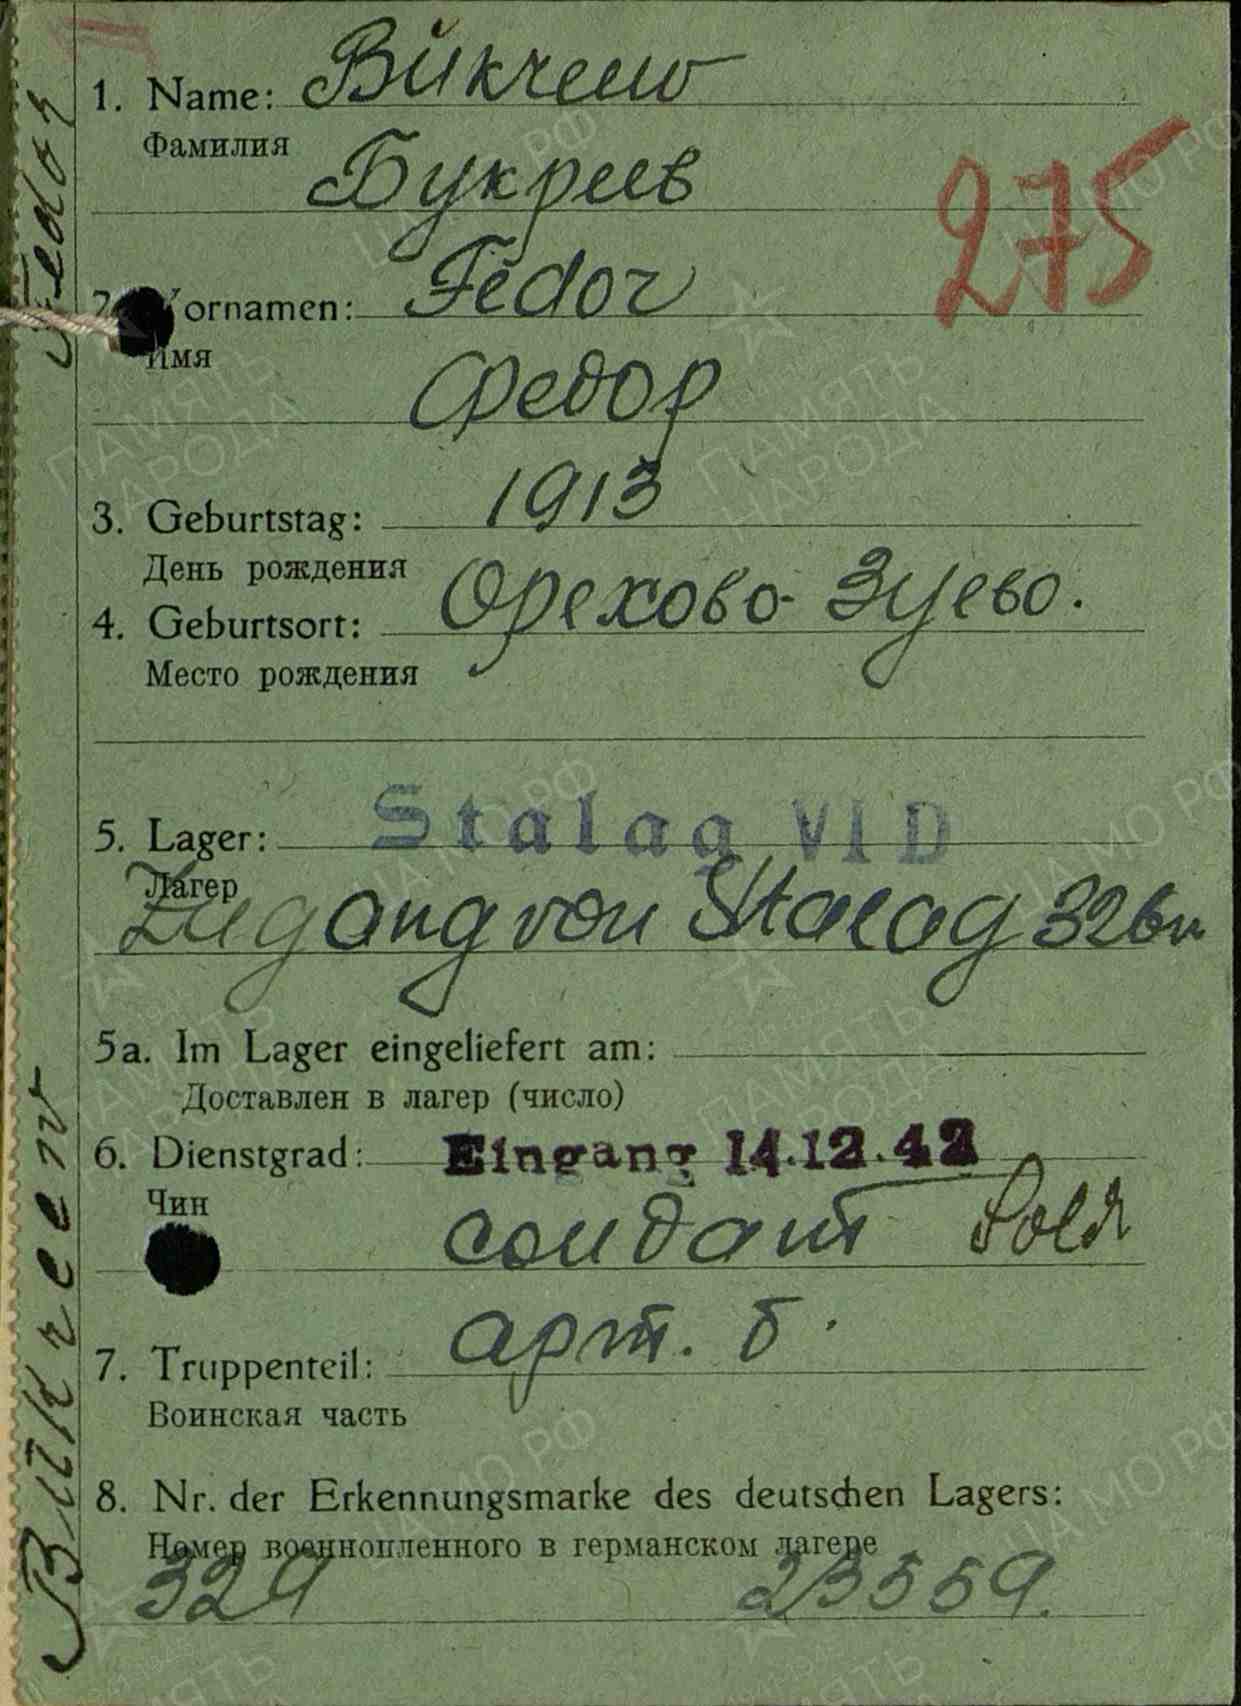 1. Name: Bukreew
Фамилия
Букреев
275
2. Vornamen: Fedor
Имя
Федор
3. Geburtstag: 1913
День рождения
4. Geburtsort: Орехово-Зуево.
Место рождения
5. Lager: Stalag VI D
Лагер
Zugang von Stalag 326
5a. Im Lager eingeliefert am:
Доставлен в лагер (число)
6. Dienstgrad: Eingang 14.12.42
Чин
солдат Sold
7. Truppenteil: арт. б.
Воинская часть
8. Nr. der Erkennungsmarke des deutschen Lagers:
Номер военнопленного в германском лагере
329 23559.
Bukreew Fedor
ПАМЯТЬ НАРОДА
ЦА МО РФ